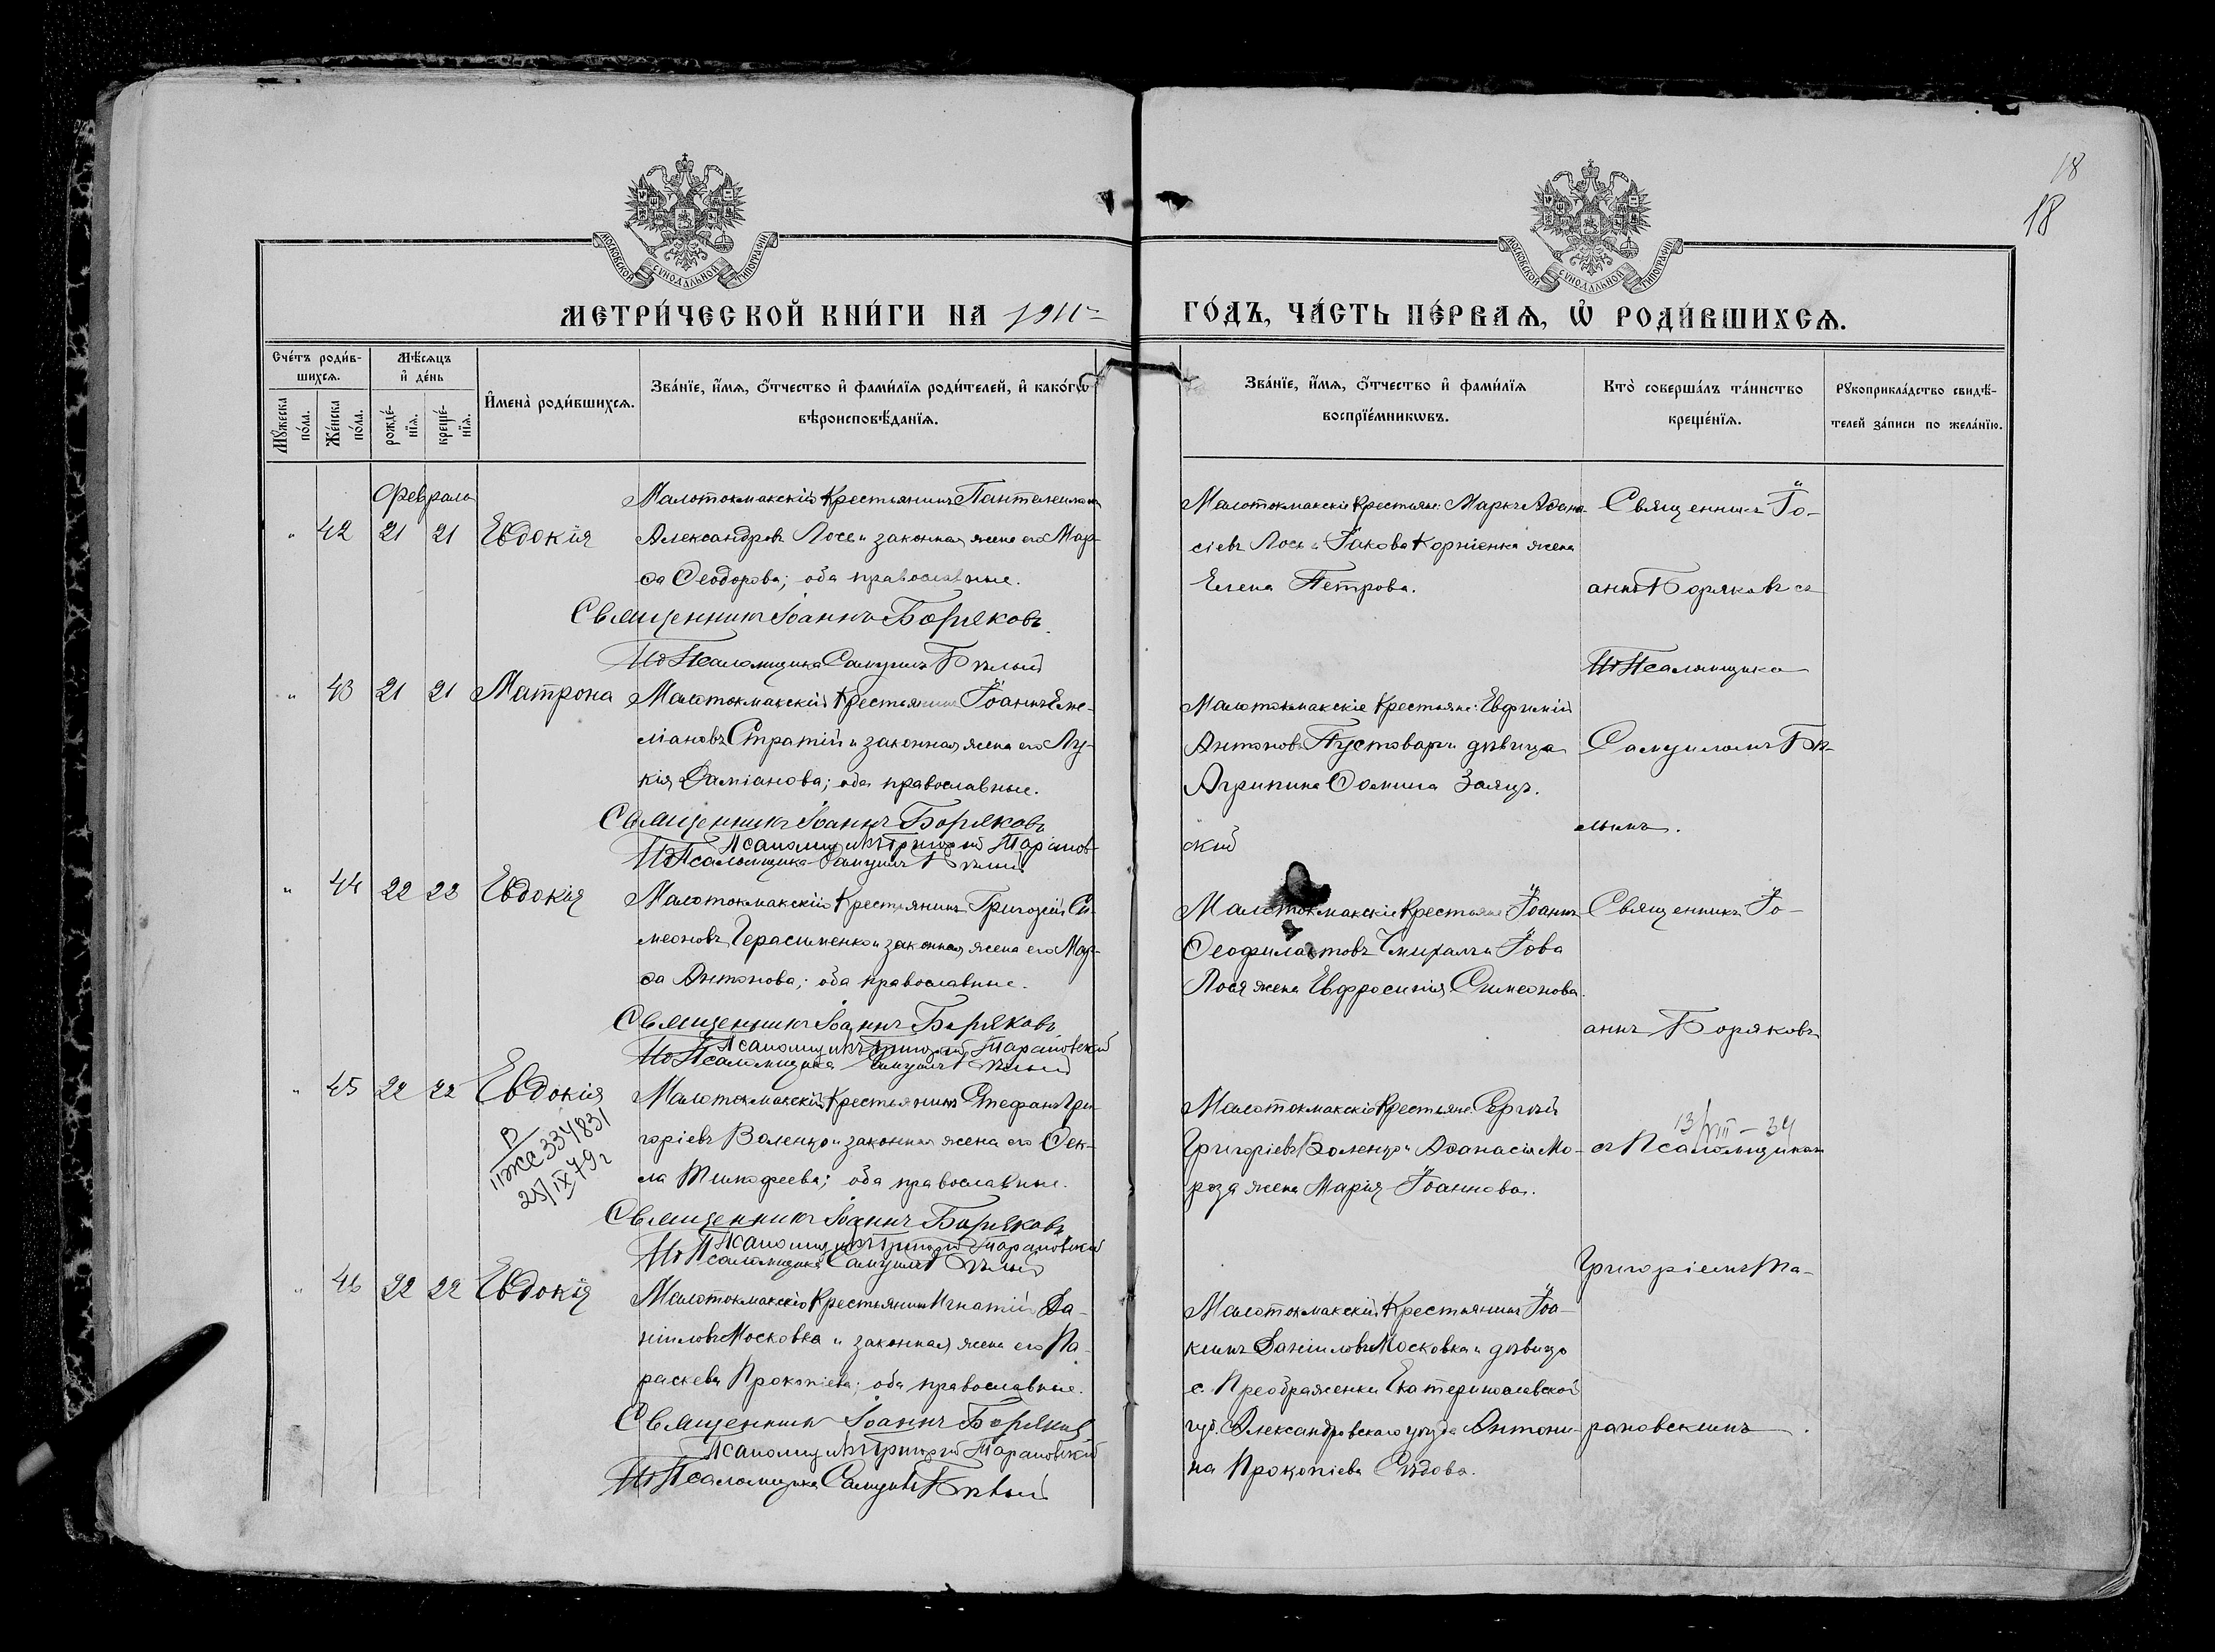 18
18
МОСКОВСКОЙ СѴНОДАЛЬНОЙ ТИПОГРАФІИ
МОСКОВСКОЙ СѴНОДАЛЬНОЙ ТИПОГРАФІИ
МЕТРИ́ЧЕСКОЙ КНИ́ГИ НА 1911
ГО́ДЪ, ЧА́СТЬ ПЕ́РВАѦ, Ѡ҆ РОДИ́ВШИХСѦ.
Сче́тъ роди́в-
шихсѧ.
Мѣ́сѧцъ
и҆ де́нь
Мꙋ́жеска
по́ла.
Же́нска
по́ла.
рожде́-
нїѧ.
креще́-
нїѧ.
И҆мена̀ роди́вшихсѧ.
Зва́нїе, и҆́мѧ, ѻ҆́тчество и҆ фами́лїѧ роди́телей, и҆ како́гѡ
вѣроисповѣ́данїѧ.
Зва́нїе, и҆́мѧ, ѻ҆́тчество и҆ фами́лїѧ
воспрїе́мникѡвъ.
Кто̀ соверша́лъ та́инство
креще́нїѧ.
Рꙋкоприкла́дство свидѣ́-
телей за́писи по жела́нїю.
Февраль
Малотокмакскій Крестьянинъ Пантелеимонъ
" 42 21 21 Евдокія Александровъ Лось и законная жена его Мар-
ѳа Ѳеодорова; оба православные.
Священникъ Іоаннъ Боряковъ
И д Псаломщика Самуилъ Бѣлый
Малотокмакскіе Крестьяне: Маркъ Аѳана-
сіевъ Лось и Іакова Корніенка жена
Елена Петрова.
Священникъ Іо-
аннъ Боряковъ съ
И д Псаломщика
" 43 21 21 Матрона Малотокмакскій Крестьянинъ Іоаннъ Еме-
ліановъ Стратій и законная жена его Лу-
кія Даміанова; оба православные.
Священникъ Іоаннъ Боряковъ
Псаломщикъ Григорій Таранов-
ский
И д Псаломщика Самуилъ Бѣлый
Малотокмакскіе Крестьяне: Евфимій
Антоновъ Пустоваръ и дѣвица
Агрипина Ѳомина Заяцъ.
Самуиломъ Бѣ-
лымъ.
" 44 22 22 Евдокія Малотокмакскій Крестьянинъ Григорій Си-
меоновъ Герасименко и законная жена его Мар-
ѳа Антонова; оба православные.
Священникъ Іоаннъ Боряковъ
Псаломщикъ Григорій Тарановский
И д Псаломщика Самуилъ Бѣлый
Малотокмакскіе Крестьяне Іоаннъ
Ѳеофилактовъ и Іова
Лося жена Евфросинія Симеонова.
Священникъ Іо-
аннъ Боряковъ
" 45 22 22 Евдокія Малотокмакскій Крестьянинъ Стефанъ Гри-
горіевъ Воленцо и законная жена его Ѳек-
ла Тимофеева; оба православные.
334831
25/IX 79 г
Священникъ Іоаннъ Боряковъ
Псаломщикъ Григорій Тарановский
И д Псаломщика Самуилъ Бѣлый
Малотокмакскіе Крестьяне: Сергій
Григоріевъ Воленцо и Аѳанасія Мо-
роза жена Марія Іоаннова.
13/VIII – 34
съ Псаломщикомъ
Григоріемъ Та-
" 46 22 22 Евдокія Малотокмакскій Крестьянинъ Игнатій Да-
ніиловъ Московка и законная жена его Па-
раскева Прокопіева; оба православные.
Священникъ Іоаннъ Боряковъ
Псаломщикъ Григорій Тарановский
И д Псаломщика Самуилъ Бѣлый
Малотокмакскій Крестьянинъ Іоа-
кимъ Даніиловъ Московка и дѣвица
с. Преображенки Екатеринославской
губ. Александровскаго уѣзда Антони-
на Прокопіева Сѣдова.
рановскимъ.